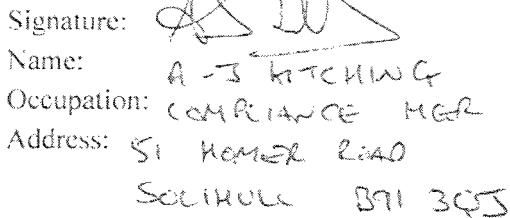 Signature:
Name: A-J KITCHING
Occupation: COMPLIANCE MGR
Address: 51 HOMER ROAD
SOLIHULL B91 3QJ